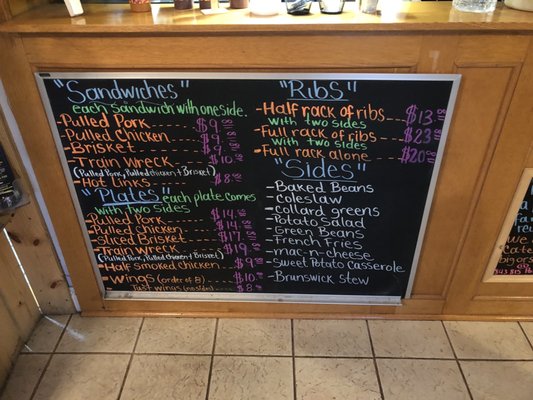 "Sandwiches"
each sandwich with one side.
Pulled Pork $9
Pulled Chicken $9
Brisket $9
Train Wreck $10
(Pulled Pork, Pulled chicken + Brisket)
-Hot Links $8
"Plates" each plate comes
with two sides
-Pulled Pork $14
-Pulled chicken $14
-Sliced Brisket $17
-Train Wreck $19
(Pulled Pork, Pulled chicken + Brisket)
-Half smoked chicken $9
-Wings (order of 8) $10
Just wings (no side) $8
"Ribs"
-Half rack of ribs $13
with two sides
-Full rack of ribs $23
with two sides
-Full rack alone $20
"Sides"
-Baked Beans
-Coleslaw
-Collard greens
-Potato Salad
-Green Beans
-French Fries
-mac-n-cheese
-Sweet Potato Casserole
-Brunswick stew